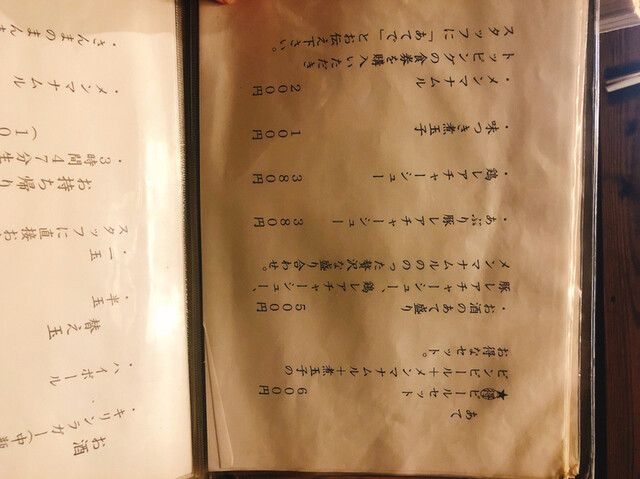 あて
★ビールセット 600円
ビンビール＋メンマナムル＋煮玉子の
お得なセット。
・お酒のあて盛り 500円
豚レアチャーシュー、鶏レアチャーシュー、
メンマナムルののった贅沢な盛り合わせ。
・あぶり豚レアチャーシュー 380円
・鶏レアチャーシュー 380円
・味つき煮玉子 100円
・メンマナムル 200円
トッピングの食券を購入いただき
スタッフに「あてで」とお伝え下さい。
お酒
・キリンラガー（中瓶
・ハイボール
替え玉
・半玉
・一玉
スタッフに直接お
お持ち帰り
・3時間47分生
（10
メンマナムル
・さんまのまんま